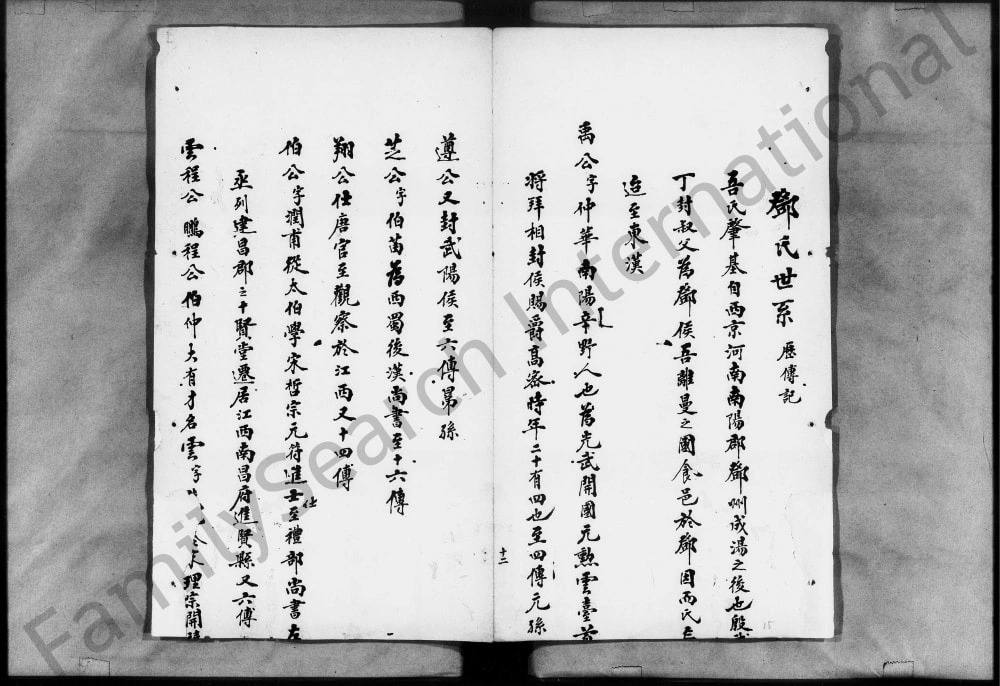 鄧氏世系 歷傳記
吾氏肇基自西京河南南陽郡鄧州成湯之後也殷
丁封叔父為鄧侯吾離曼之國食邑於鄧因而氏
迨至東漢
禹公字仲華南陽辛野人也為光武開國元勲雲臺首
將拜相封侯賜爵高密時年二十有四也至四傳元孫
十二
遵公又封武陽侯至六傳第孫
芝公字伯苗為西蜀後漢尚書至十六傳
翔公仕唐官至觀察於江西又十四傳
伯公字潤甫從太伯學宋哲宗元符進士仕至禮部尚書左
丞列建昌郡之十賢堂遷居江西南昌府進賢縣又六傳
雲程公鵬程公伯仲大有才名雲字 理宗開
15
FamilySearch International